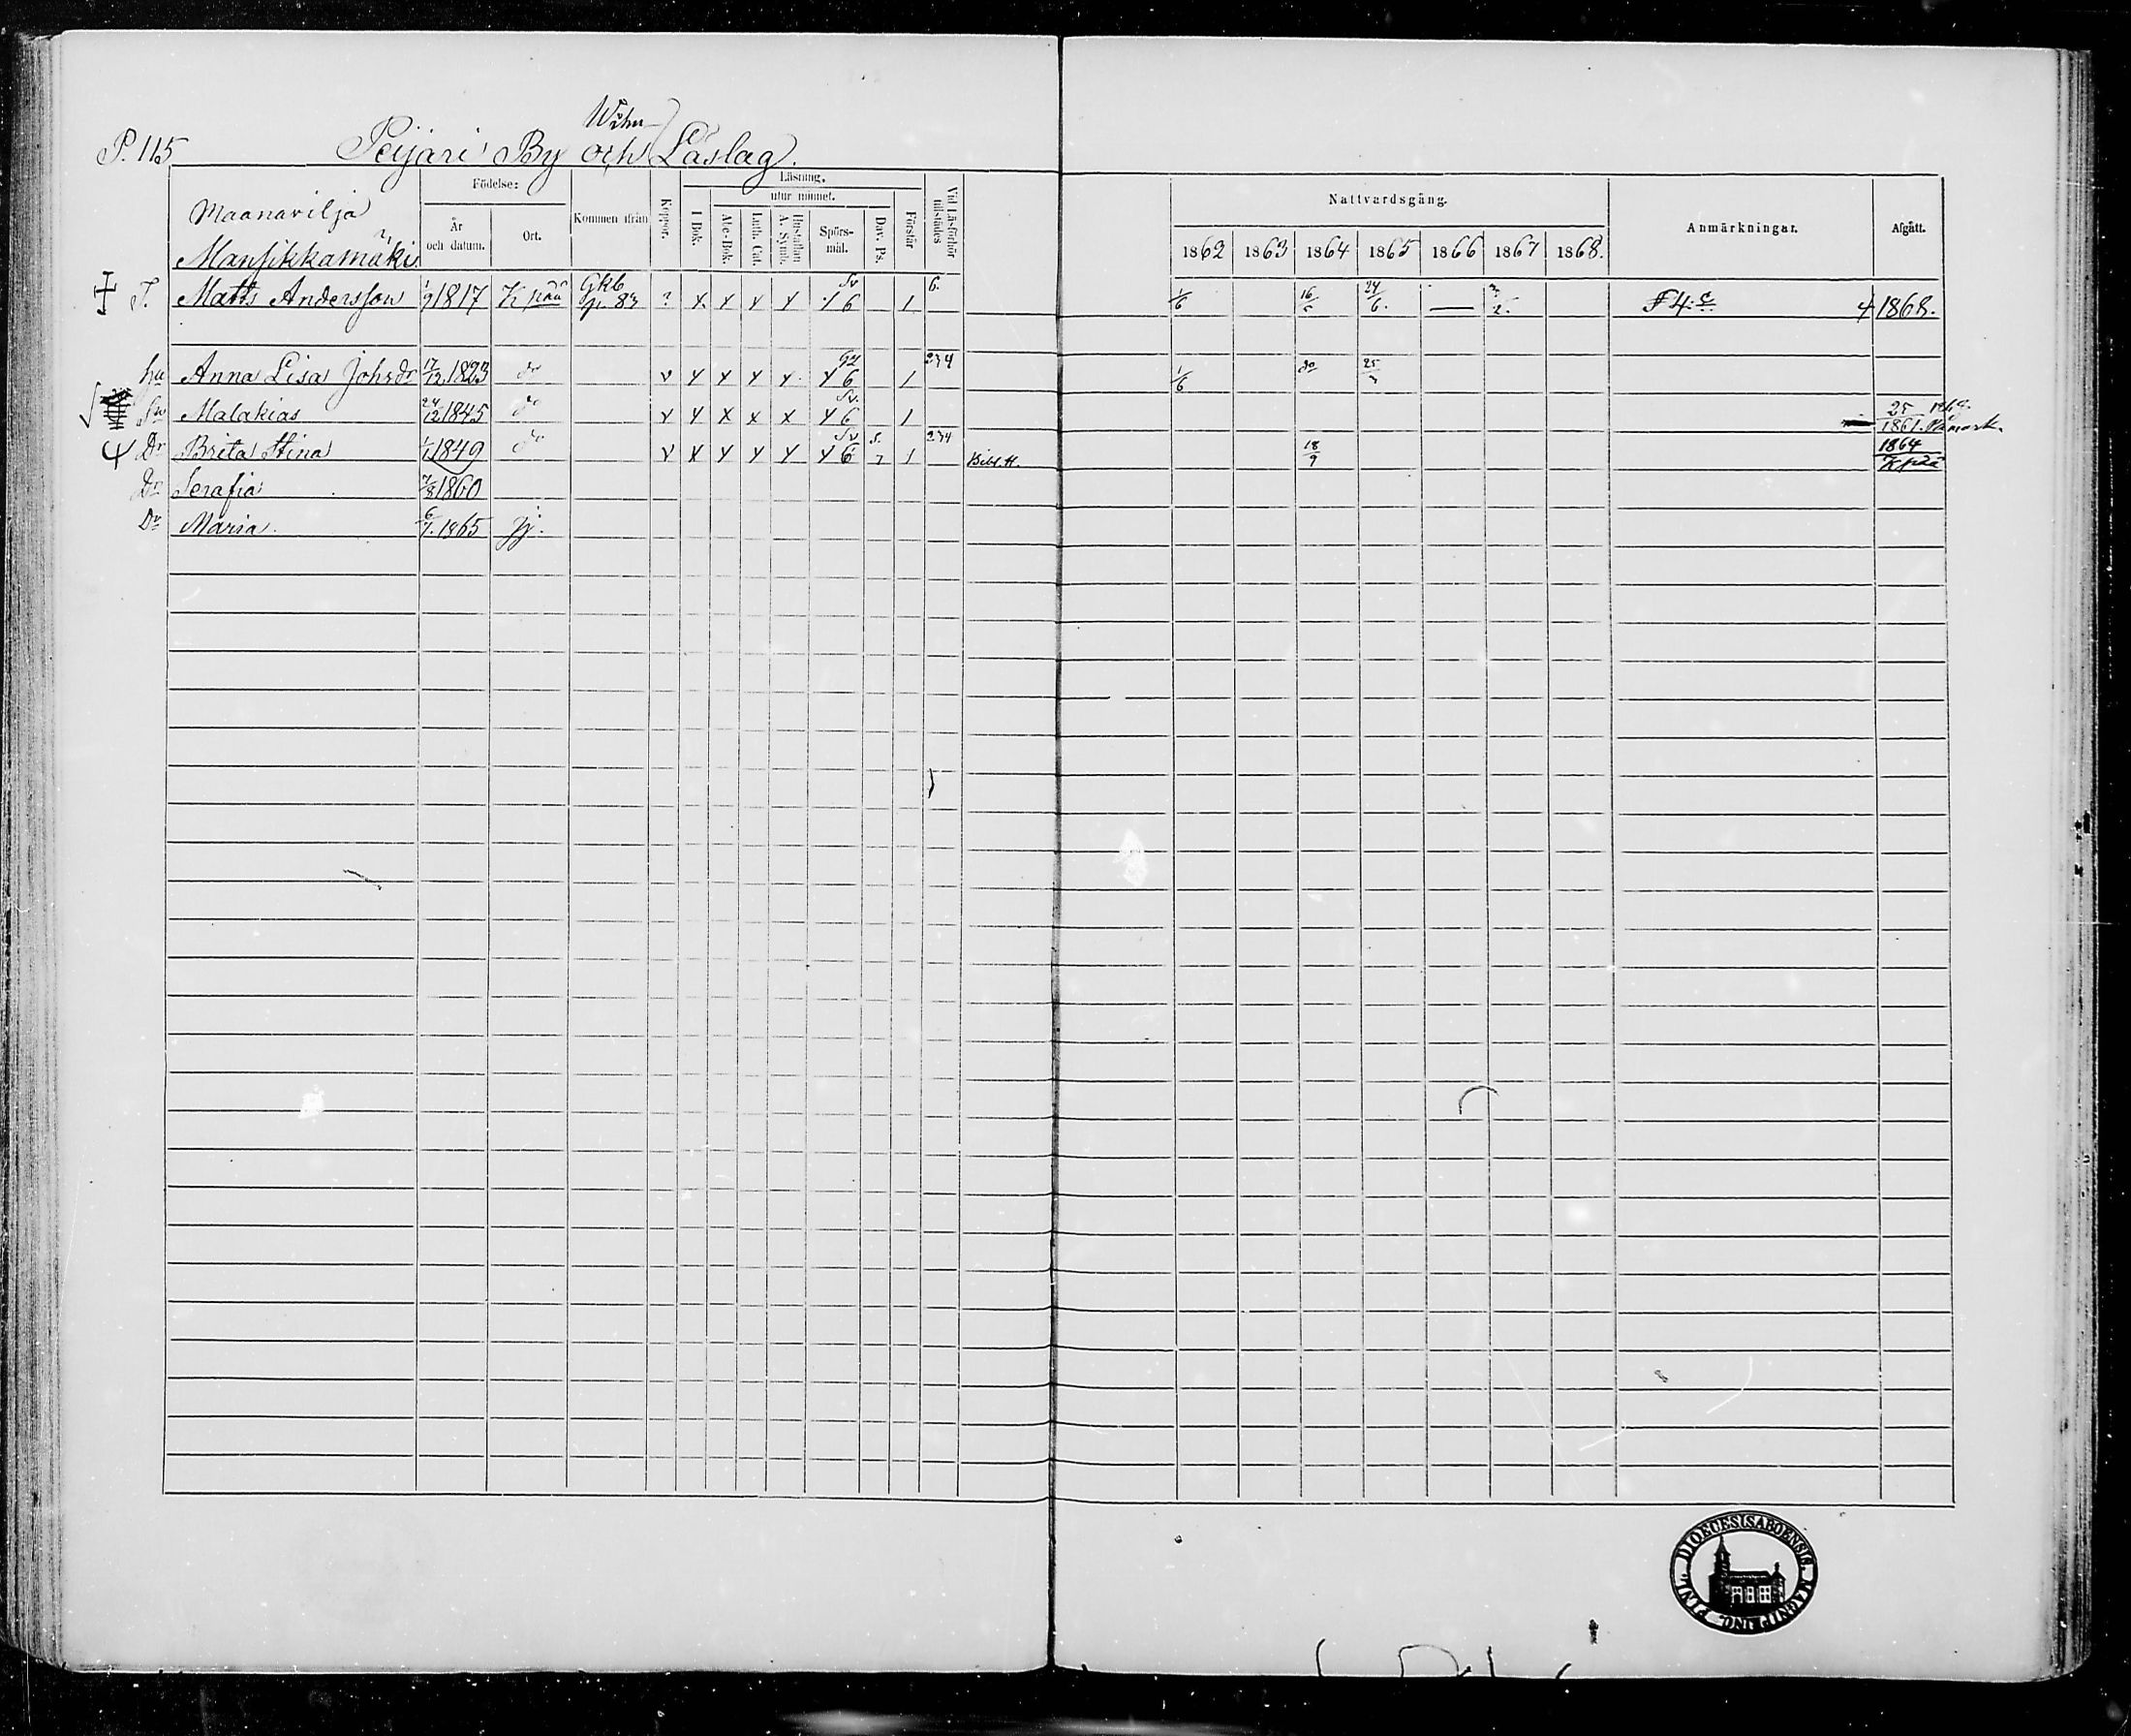 P. 115 Peijari By och Läslag.
Födelse:
Läsning.
utur minnet.
Maanavilja
Mansikkamäki
År och datum.
Ort.
Kommen ifrån
Koppor.
I Bok.
Abc-Bok.
Luth. Cat.
Hustaflan A. Symb.
Spörsmål.
Dav. Ps.
Förstår
Vid Läsförhör tillstädes
Nattvardsgång.
1862 1863 1864 1865 1866 1867 1868.
Anmärkningar.
Afgått.
T. Matts Andersson 1/9 1817 Kpää Gkb p. 83 ? x x x x Sv 6 1 6. 1/6 24/6. — 4 1868.
hu Anna Lisa Johsdr 17/12 1823 do v x x x x 6 1 234 1/6
Sn Malakias 24/12 1845 do v x x x x Sv. 6 1 25 1861.
Dr Brita Stina 1/1 1849 do v x x x x Sv 6 1 234 Bibl. H. 18/9 1864 Kpää
Dr Serafia 7/8 1860
Dr Maria. 6/7. 1865 Jj.
FINL. DIOECESIS ABOENSIS. MAGNI PRINC.